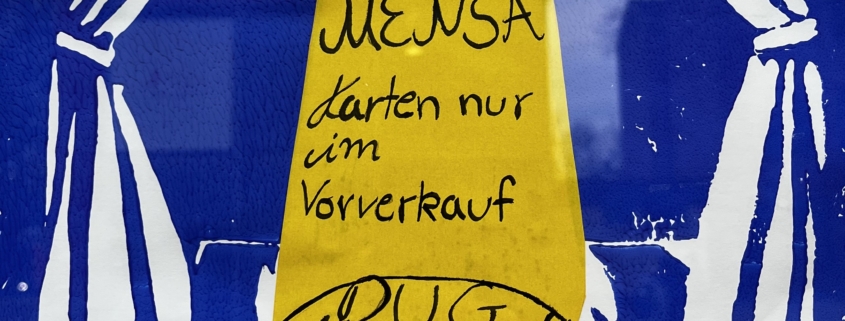 MENSA
Karten nur
im
Vorverkauf
DUG